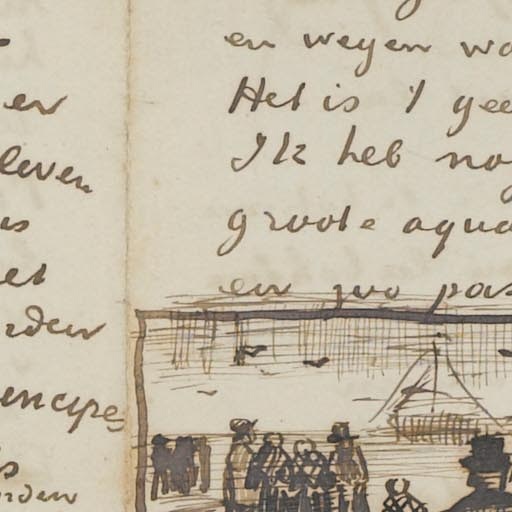 er
leven
is
et
rden
incipe
is
rden
en wegen wa
Het is 't gee
Ik heb nog
groote aqua
en zoo pas